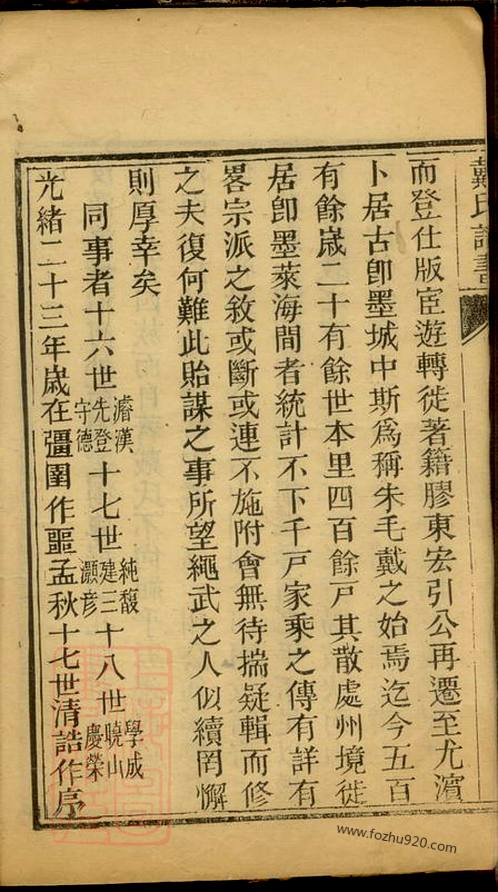 戴氏譜書
而登仕版宦遊轉徙著籍膠東宏引公再遷至尤濱
卜居古卽墨城中斯爲稱朱毛戴之始焉迄今五百
有餘歲二十有餘世本里四百餘戸其散處州境徙
居卽墨萊海間者統計不下千戸家乘之傳有詳有
畧宗派之敘或斷或連不施附會無待揣疑輯而修
之夫復何難此貽謀之事所望繩武之人似續罔懈
則厚幸矣
同事者十六世濬漢先登守德十七世純馥建三灝彥十八世學成曉山慶榮
光緒二十三年歲在彊圉作噩孟秋十七世清誥作序
www.fozhu920.com